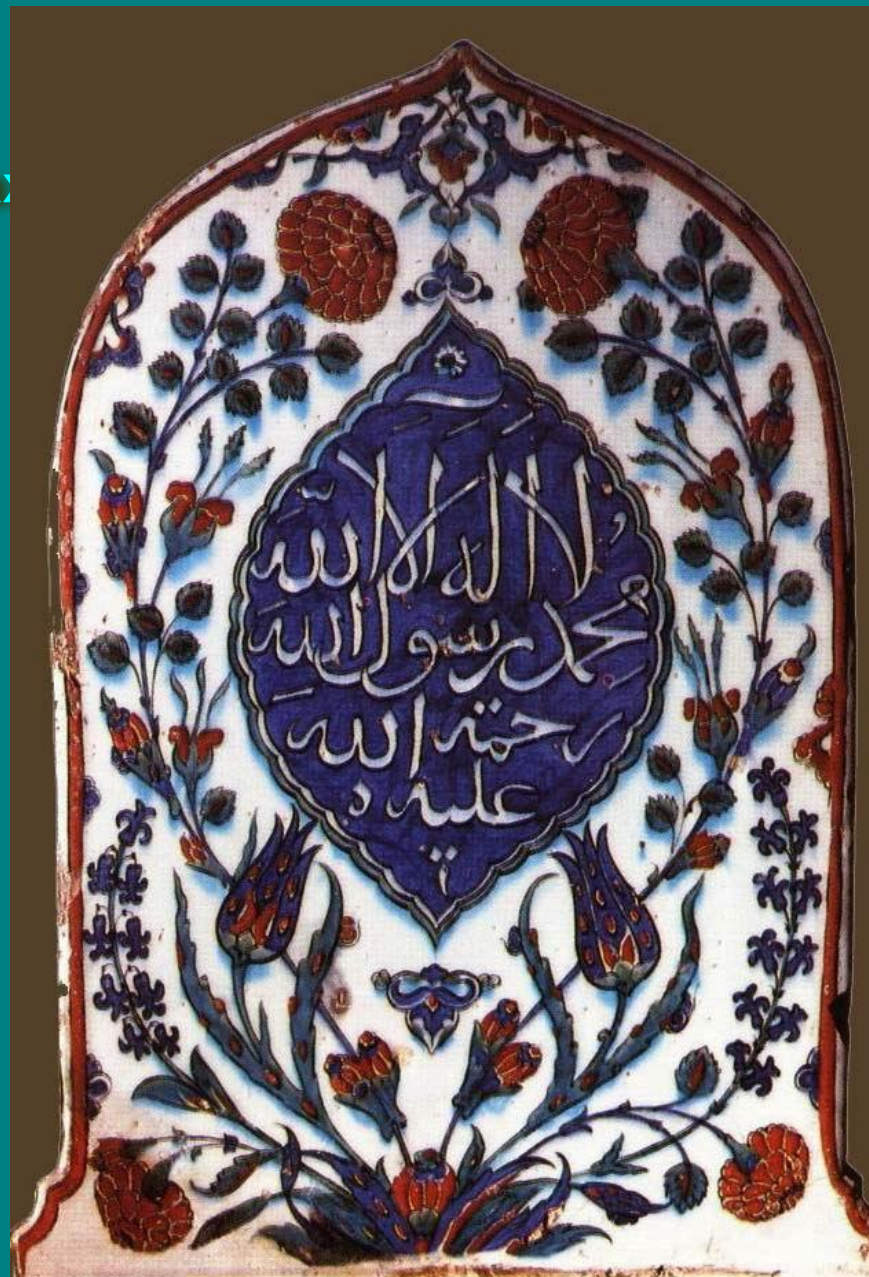 لا اله الا الله
محمد رسول الله
رحمة الله
عليه